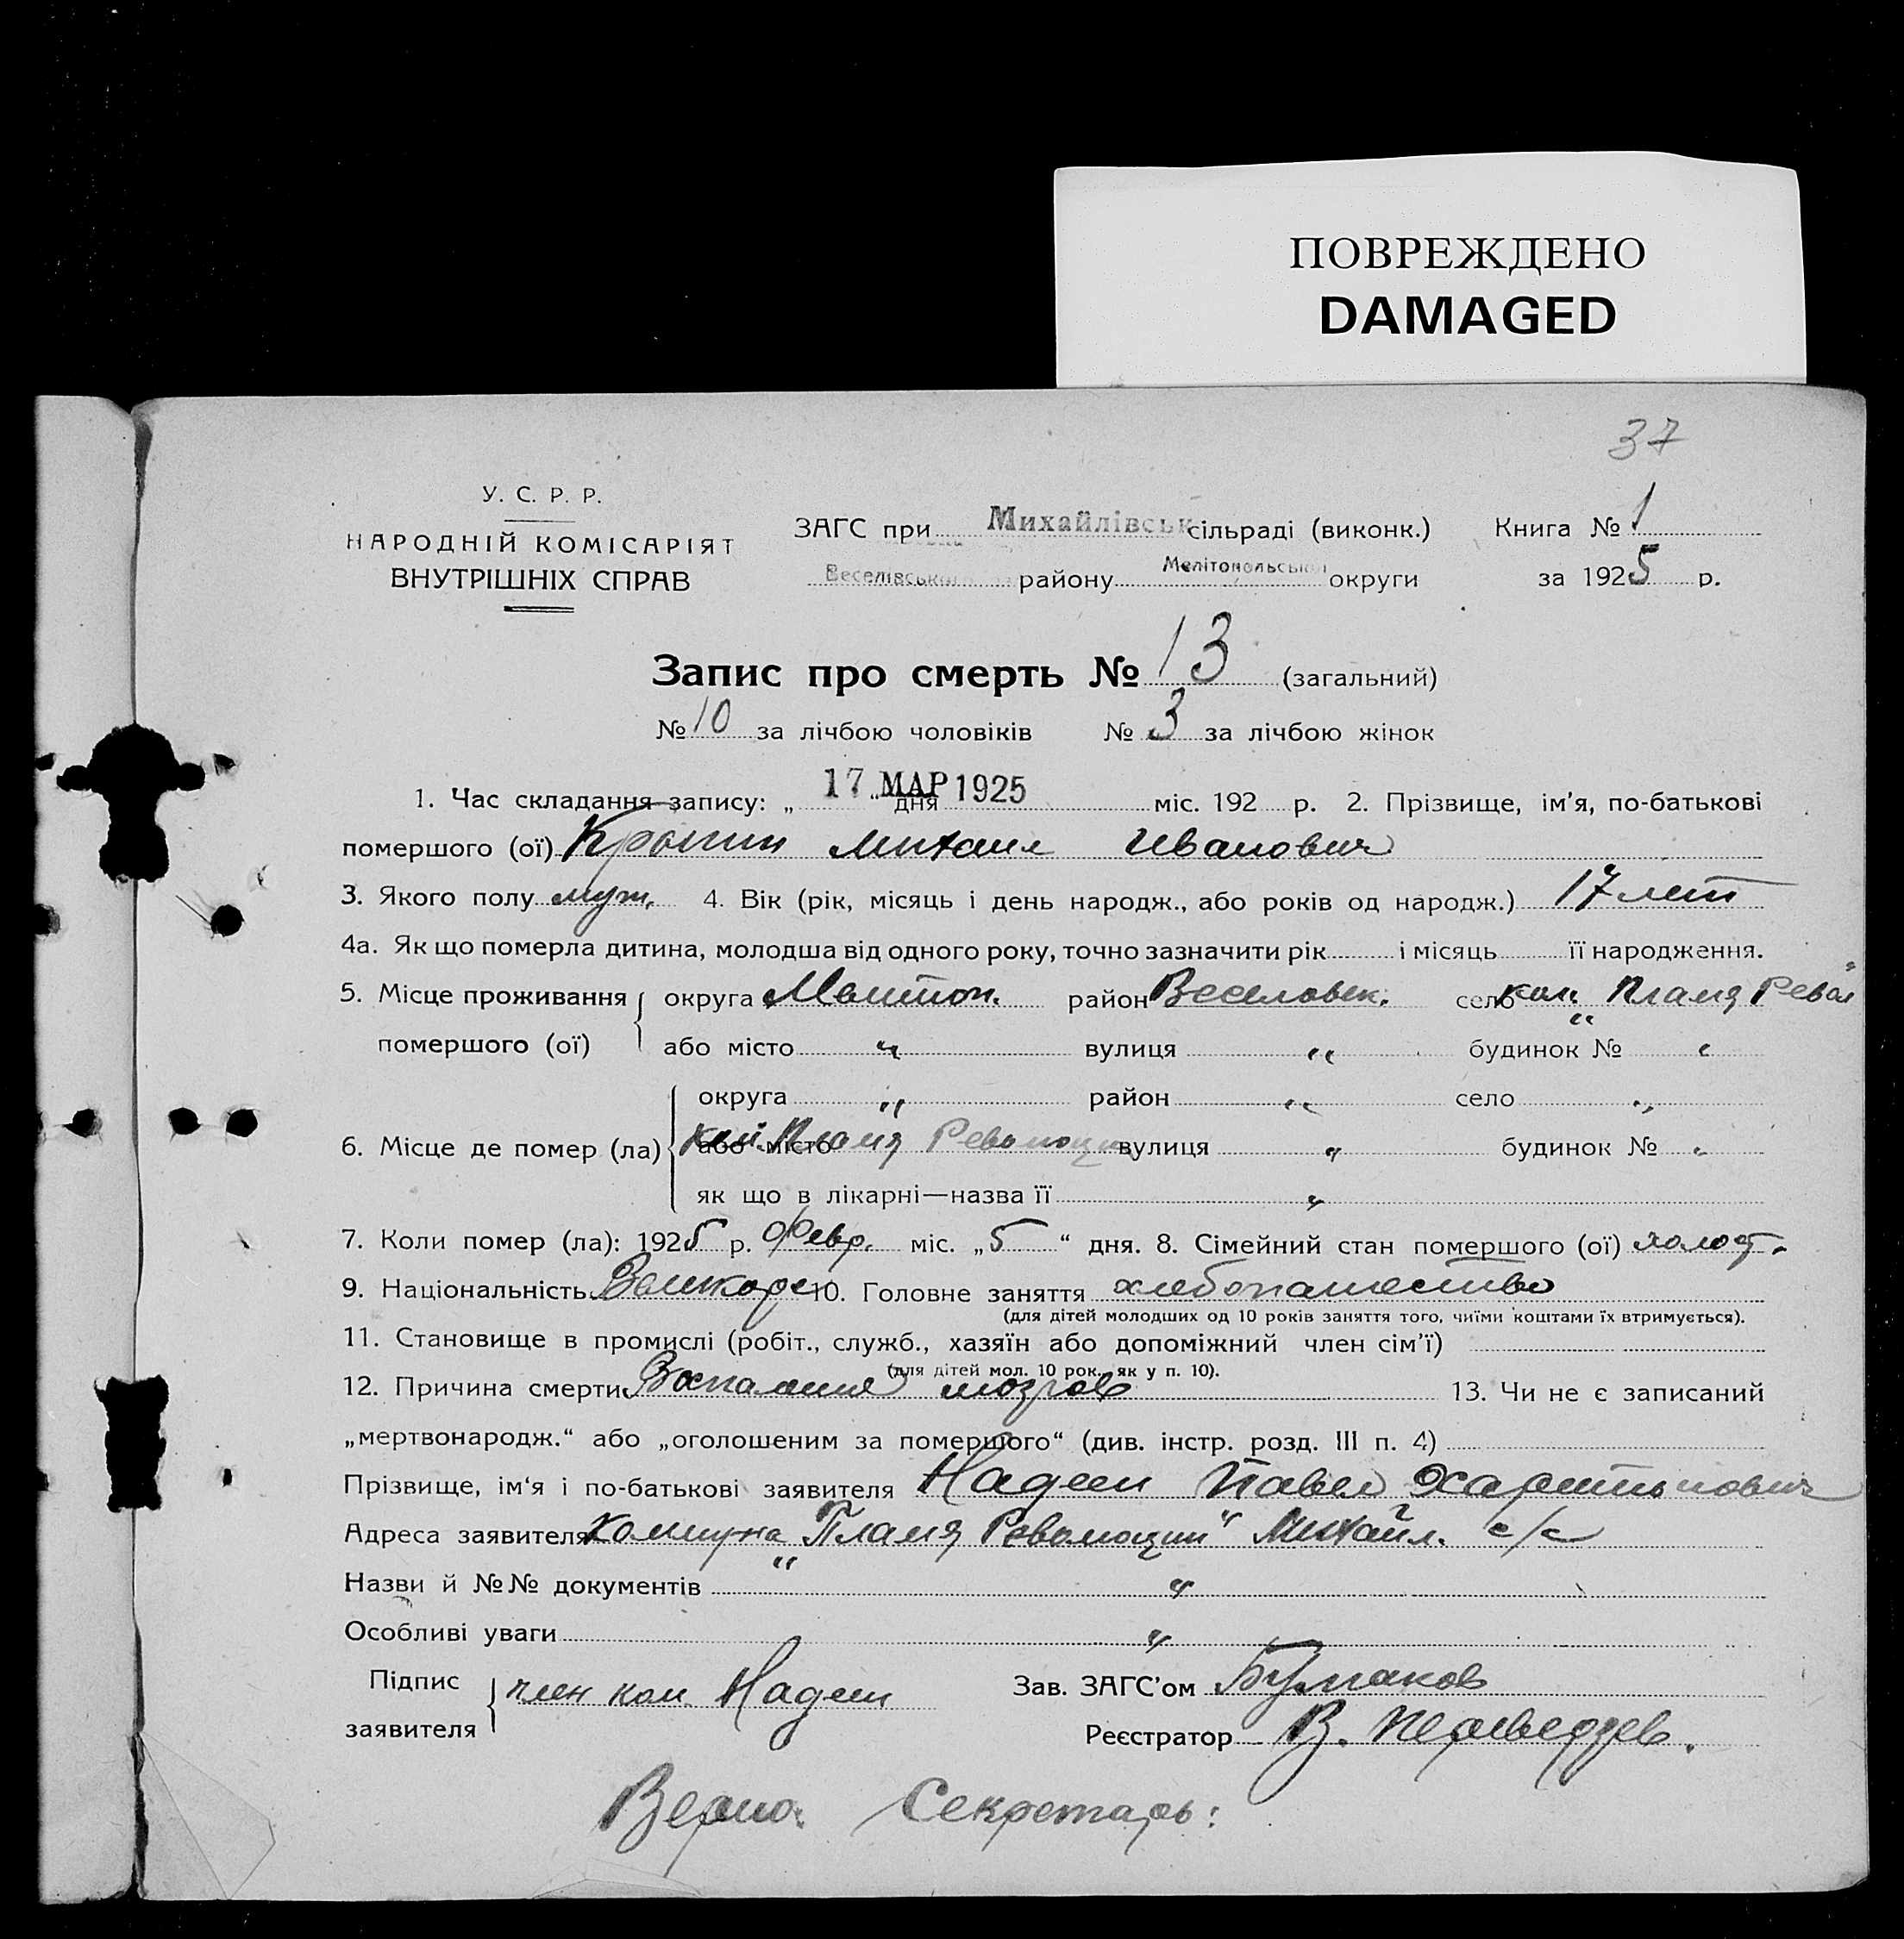 ПОВРЕЖДЕНО
DAMAGED
37
У. С. Р. Р.
НАРОДНІЙ КОМІСАРІЯТ
ВНУТРІШНІХ СПРАВ
ЗАГС при Михайлівськ сільраді (виконк.) Книга № 1
Веселівського району Мелітопольської округи за 1925 р.
Запис про смерть № 13 (загальний)
№ 10 за лічбою чоловіків № 3 за лічбою жінок
1. Час складання запису: „ 17 “ дня МАР 1925 міс. 192 р. 2. Прізвище, ім’я, по-батькові
помершого (ої) Михаил Иванович
3. Якого полу муж. 4. Вік (рік, місяць і день народж., або років од народж.) 17 лет
4а. Як що померла дитина, молодша від одного року, точно зазначити рік і місяць її народження.
5. Місце проживання округа Мелитоп. район Веселовск. село ком. Пламя Револ
помершого (ої) або місто „ вулиця „ будинок № „
округа „ район „ село „
6. Місце де помер (ла) або місто ком. Пламя Революции вулиця „ будинок № „
як що в лікарні—назва її „
7. Коли помер (ла): 1925 р. Февр. міс. „5“ дня. 8. Сімейний стан помершого (ої) холост.
9. Національність Великорос 10. Головне заняття хлебопашество
(для дітей молодших од 10 років заняття того, чиїми коштами їх втримується).
11. Становище в промислі (робіт., служб., хазяїн або допоміжний член сім’ї)
(для дітей мол. 10 рок., як у п. 10).
12. Причина смерти Воспаление мозгов 13. Чи не є записаний
„мертвонародж.“ або „оголошеним за помершого“ (див. інстр. розд. III п. 4)
Прізвище, ім‘я і по-батькові заявителя Надеин Павел Харитонович
Адреса заявителя Коммуна „Пламя Революции“ Михайл. с/с
Назви й №№ документів „
Особливі уваги „
Підпис
заявителя член ком. Надеин
Зав. ЗАГС’ом Булгаков
Реєстратор В.
Верно: Секретарь: